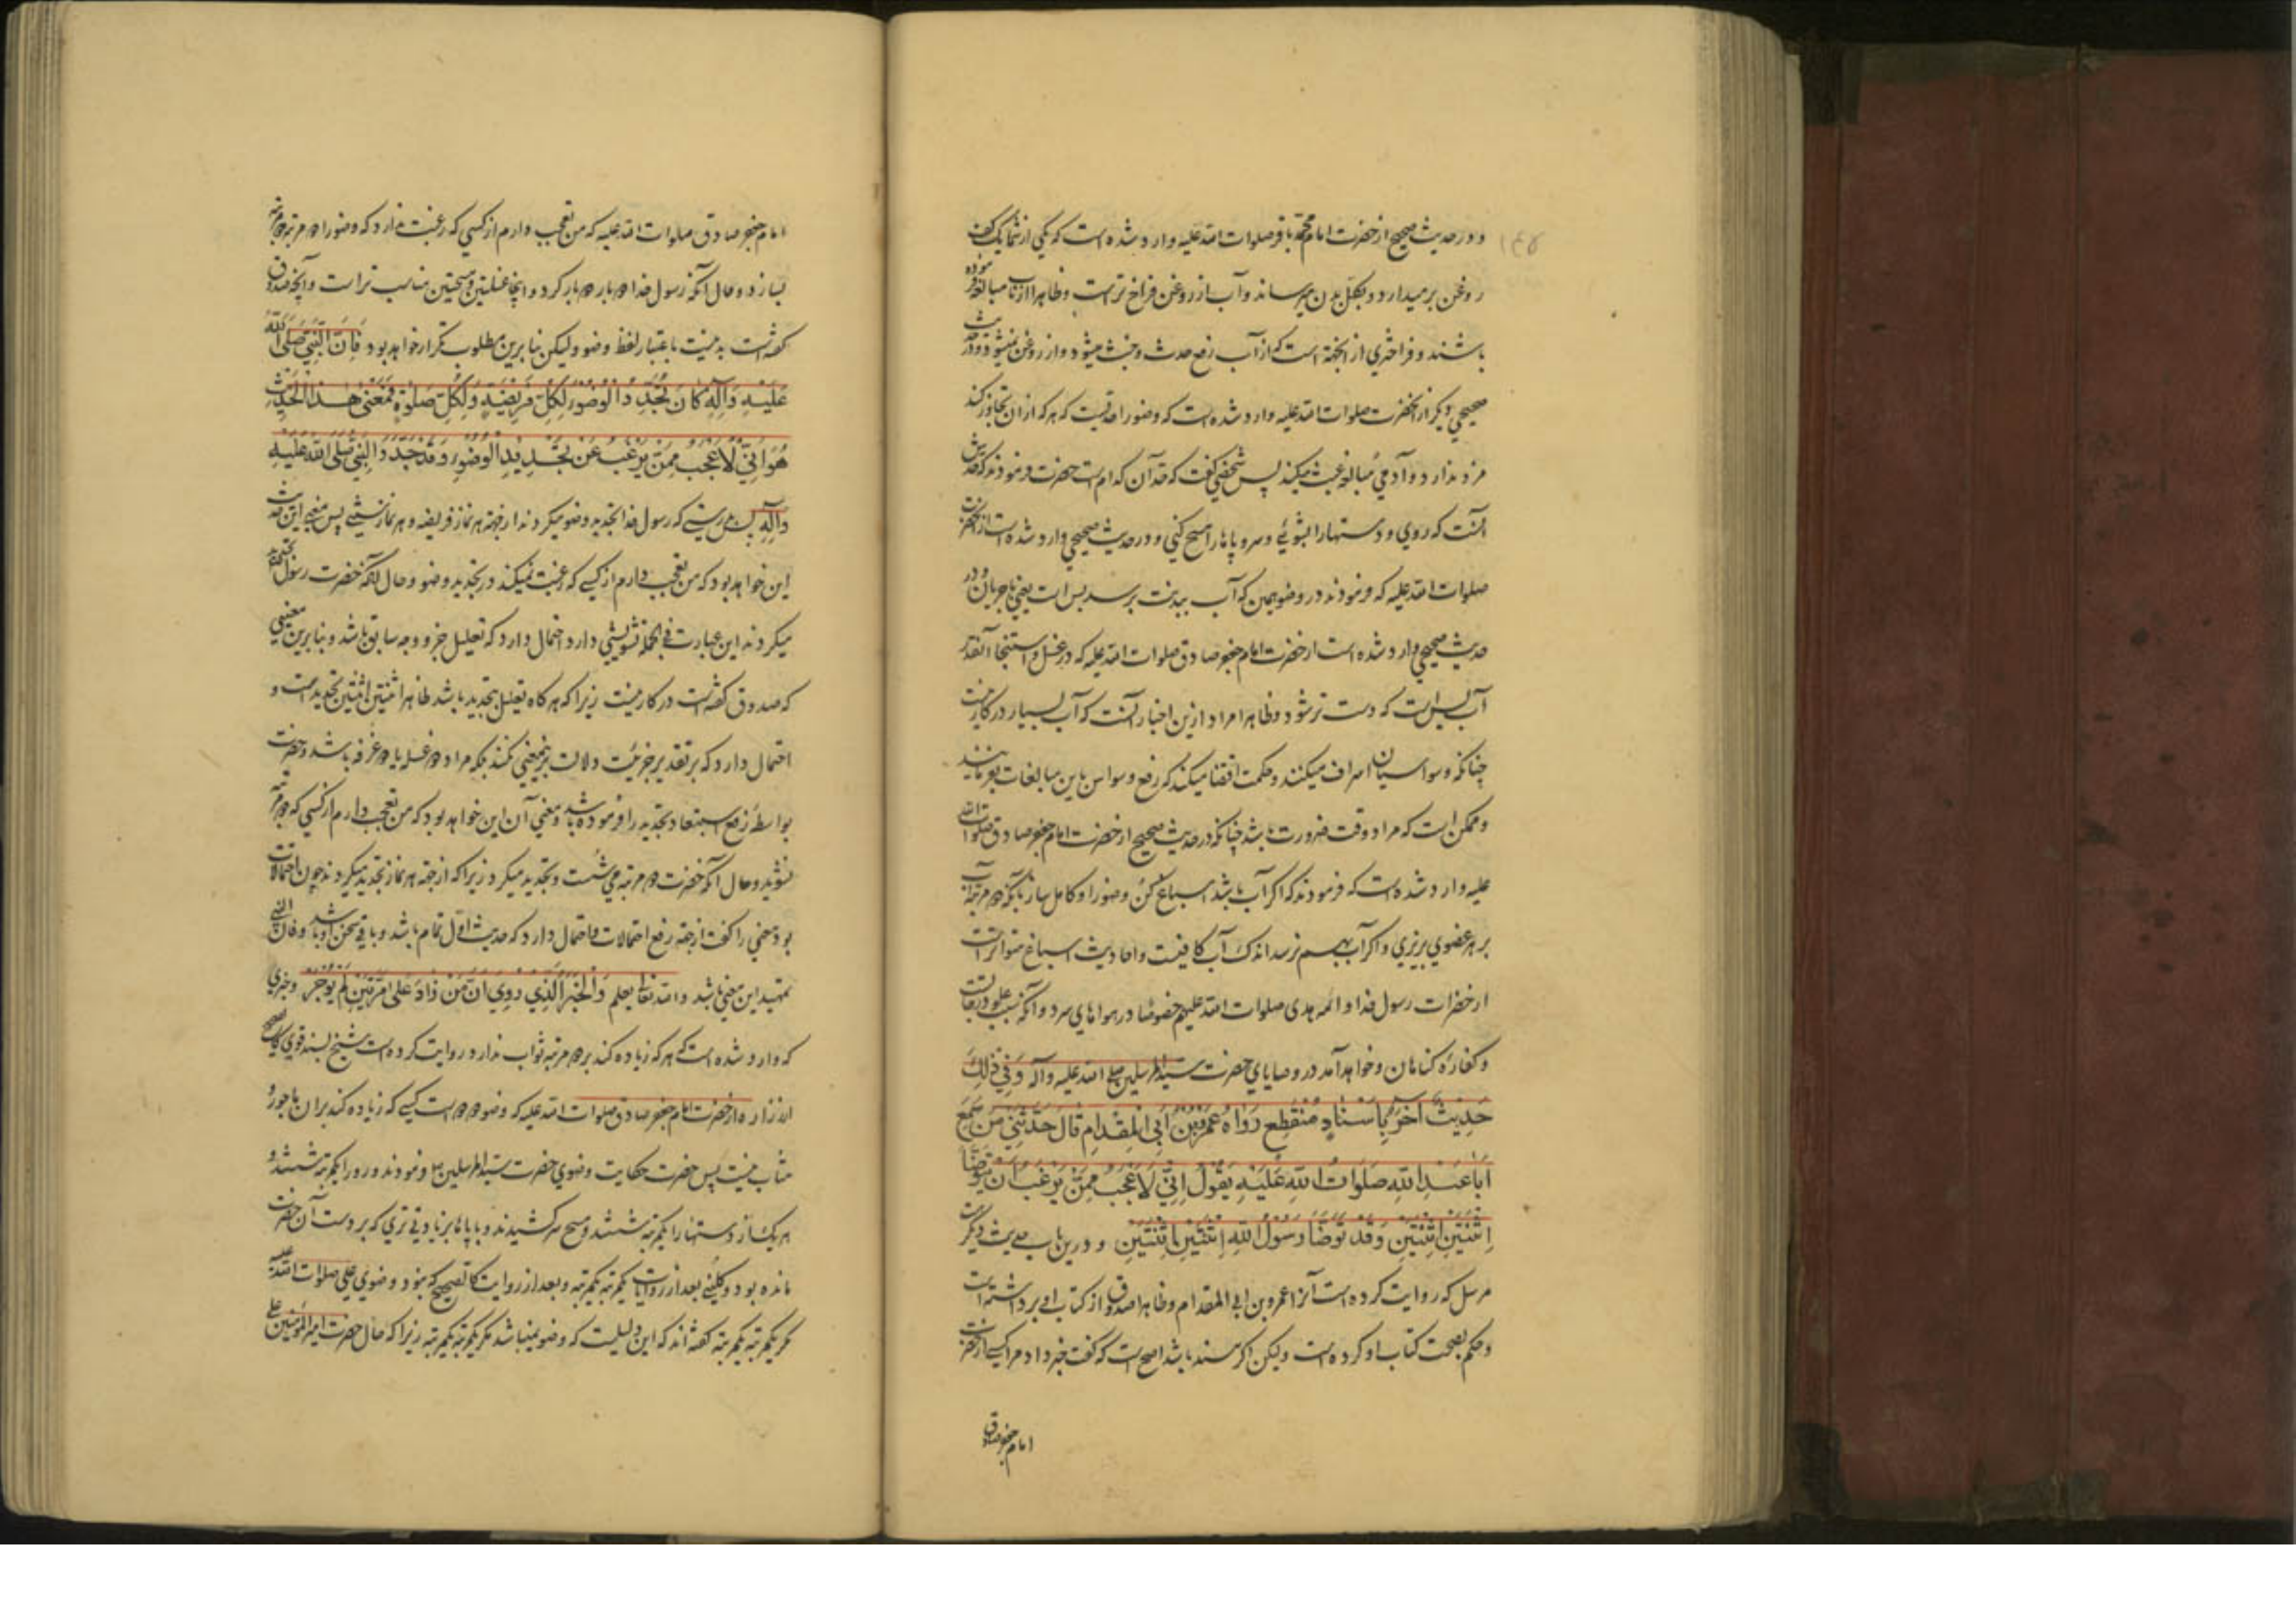 و در حدیث صحیح از حضرت امام محمد باقر صلوات الله علیه وارد شده است که یکی از شما یک کف
روغن بر میدارد و بکل بدن میرساند و آب از روغن فراخ تر است و ظاهرا از باب مبالغه فرموده
باشند و فراختری از اینجهة است که از آب رفع حدث و خبث میشود و از روغن نمیشود و در حدیث
صحیحی دیگر از انحضرت صلوات الله علیه وارد شده است که وضو را حدیست که هر که از ان تجاوز کند
مزد ندارد و آدمی مبالغه عبث میکند پس شخصی گفت که حد آن کدام است حضرت فرمودند که حدش
آنست که روی و دستها را بشوئی و سر و پاها را مسح کنی و در حدیث صحیحی وارد شده است از انحضرت
صلوات الله علیه که فرمودند در وضو همین که آب ببدنت برسد بس است یعنی با جریان و در
حدیث صحیحی وارد شده است از حضرت امام جعفر صادق صلوات الله علیه که در غسل و استنجا آنقدر
آب بس است که دست تر شود و ظاهرا مراد ازین اخبار آنست که آب بسیار در کار نیست
چنانکه وسواسیان اسراف میکنند و حکمت اقتضا میکند که رفع وسواس باین مبالغات بفرمایند
و ممکن است که مراد وقت ضرورت باشد چنانکه در حدیث صحیح از حضرت امام جعفر صادق صلوات الله
علیه وارد شده است که فرمودند که اکر آب باشد اسباغ کن وضو را و کامل ساز بآنکه دو مرتبه آب
بر هر عضوی بریزی و اکر آب بهم نرسد اندک آب کافیست و احادیث اسباغ متواتر است
از حضرات رسول خدا و ائمه هدی صلوات الله علیهم خصوصا در هواهای سرد و آنکه سبب علو درجاتست
و کفاره کناهان و خواهد آمد در وصایای حضرت سید المرسلین صلی الله علیه وآله وَفِي ذٰلِكَ
حَدِيثٌ آخَرُ بِاِسْنَادٍ مُنْقَطِعٍ رَوَاهُ عَمْرُو بْنُ اَبِي الْمِقْدَامِ قَالَ حَدَّثَنِي مَنْ سَمِعَ
اَبَا عَبْدِ اللهِ صَلَوَاتُ اللهِ عَلَيْهِ يَقُولُ اِنِّي لَاَعْجَبُ مِمَّنْ يَرْغَبُ اَنْ يَتَوَضَّأَ
اِثْنَتَيْنِ اِثْنَتَيْنِ وَقَدْ تَوَضَّأَ رَسُولُ اللهِ اِثْنَتَيْنِ اِثْنَتَيْنِ و درین باب حدیث دیکر
مرسل که روایت کرده است آنرا عمرو بن ابی المقدام و ظاهرا صدوق از کتاب او برداشته است
و حکم بصحت کتاب او کرده است ولیکن اکر مسند باشد اصح است که گفت خبر داد مرا کسی از حضرت
امام جعفر صادق
امام جعفر صادق صلوات الله علیه که من تعجب دارم از کسی که رغبت ندارد که وضو را دو مرتبه دو مرتبه
بسازد و حال آنکه رسول خدا دو بار دو بار کرد و اینجا غسلتین و مسحتین مناسب تر است و آنچه صدوق
گفته است بد نیست باعتبار لفظ وضو ولیکن بنا برین مطلوب تکرار خواهد بود فَاِنَّ النَّبِيَّ صَلَّى اللهُ
عَلَيْهِ وَآلِهِ كَانَ يُجَدِّدُ الْوُضُوءَ لِكُلِّ فَرِيضَةٍ وَلِكُلِّ صَلٰوةٍ فَمَعْنٰى هٰذَا الْحَدِيثِ
هُوَ اِنِّي لَاَعْجَبُ مِمَّنْ يَرْغَبُ عَنْ تَجْدِيدِ الْوُضُوءِ وَقَدْ جَدَّدَهُ النَّبِيُّ صَلَّى اللهُ عَلَيْهِ
وَآلِهِ بدرستی که رسول خدا تجدید وضو میکردند از جهة هر نماز فریضه و هر نماز سنتی پس معنی این حدیث
این خواهد بود که من تعجب دارم از کسی که رغبت نمیکند در تجدید وضو و حال آنکه حضرت رسول الله تجدید
میکردند این عبارت فی الجمله تشویشی دارد احتمال دارد که تعلیل جزو وجه سابق باشد و بنا برین معنیی
که صدوق گفته است در کار نیست زیرا که هر گاه تعلیل بتجدید باشد ظاهرا ثنتین اثنتین تجدید است و
احتمال دارد که بر تقدیر جزئیت دلالت برنمعنی نکند بلکه مراد دو غسل یا دو غرفه باشد و حضرت
بواسطه رفع استبعاد تجدید را فرموده باشد و معنی آن این خواهد بود که من تعجب دارم از کسی که دو مرتبه
نشوید و حال آنکه حضرت دو مرتبه می شست و تجدید میکرد زیرا که از جهة هر نماز تجدید میکردند چون احتمالات
بود معنی را گفت از جهة رفع احتمالات و احتمال دارد که حدیث اول تمام باشد و باقی سخن او باشد و فان النبی
تمهید این معنی باشد و الله تعالی یعلم وَالْخَبَرُ الَّذِي رُوِيَ اَنَّ مَنْ زَادَ عَلٰى مَرَّتَيْنِ لَمْ يُؤْجَرْ و خبری
که وارد شده است که هر که زیاده کند بر دو مرتبه ثواب ندارد روایت کرده است شیخ بسند قوی کالصحیح
از زراره از حضرت امام جعفر صادق صلوات الله علیه که وضو دو دو است کسی که زیاده کند بر ان ماجور
مثاب نیست پس حضرت حکایت وضوی حضرت سید المرسلین فرمودند و رو را یکمرتبه شستند و
هر یک از دستها را یکمرتبه شستند و مسح سر کشیدند و با پاها بزیادتی تری که بر دست آن حضرت
مانده بود و کلینی بعد از روایات یکمرتبه یکمرتبه و بعد از روایت کالصحیح که نبود وضوی علی صلوات الله علیه
مکر یکمرتبه یکمرتبه گفته اند که این دلیلیست که وضو نمیباشد مکر یکمرتبه یکمرتبه زیرا که حال حضرت امیر المؤمنین علی